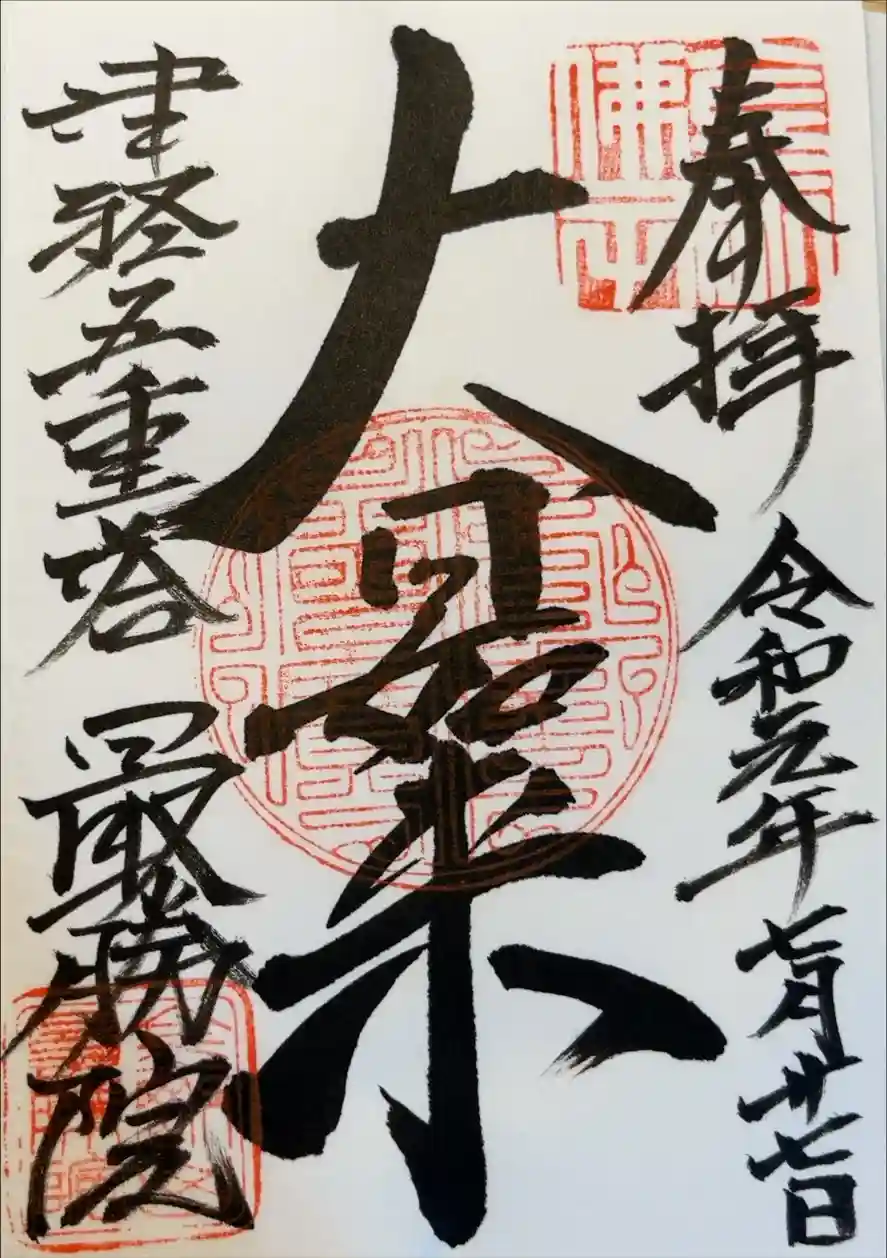 奉拝 令和元年 七月廿七日
大日如来
津軽五重塔 最勝院